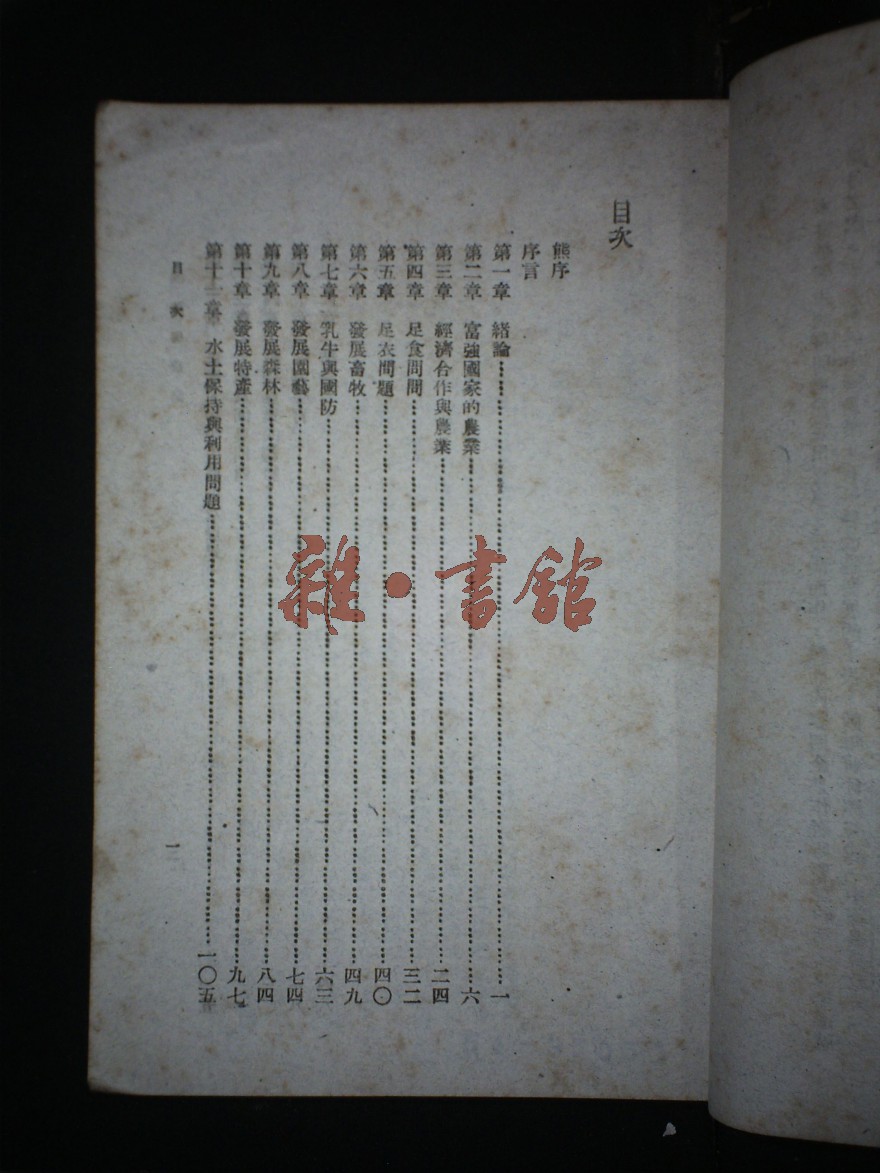 目次
熊序
序言
第一章 緒論……一
第二章 富強國家的農業……六
第三章 經濟合作與農業……二四
第四章 足食問問……三二
第五章 足衣問題……四〇
第六章 發展畜牧……四九
第七章 乳牛與國防……六三
第八章 發展園藝……七四
第九章 發展森林……八四
第十章 發展特產……九七
第十一章 水土保持與利用問題……一〇五
目次
一
雜·書館